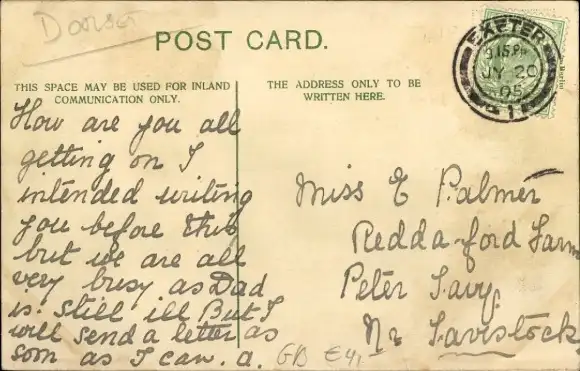 Dorset
POST CARD.
THIS SPACE MAY BE USED FOR INLAND
COMMUNICATION ONLY.
THE ADDRESS ONLY TO BE
WRITTEN HERE.
EXETER
JY 20
05
1
How are you all
getting on I
intended writing
you before this
but we are all
very busy as Dad
is still ill But I
will send a letter as
soon as I can. a.
Miss E Palmer
Redda-ford Farm
Peter Tavy
Nr Tavistock
GB